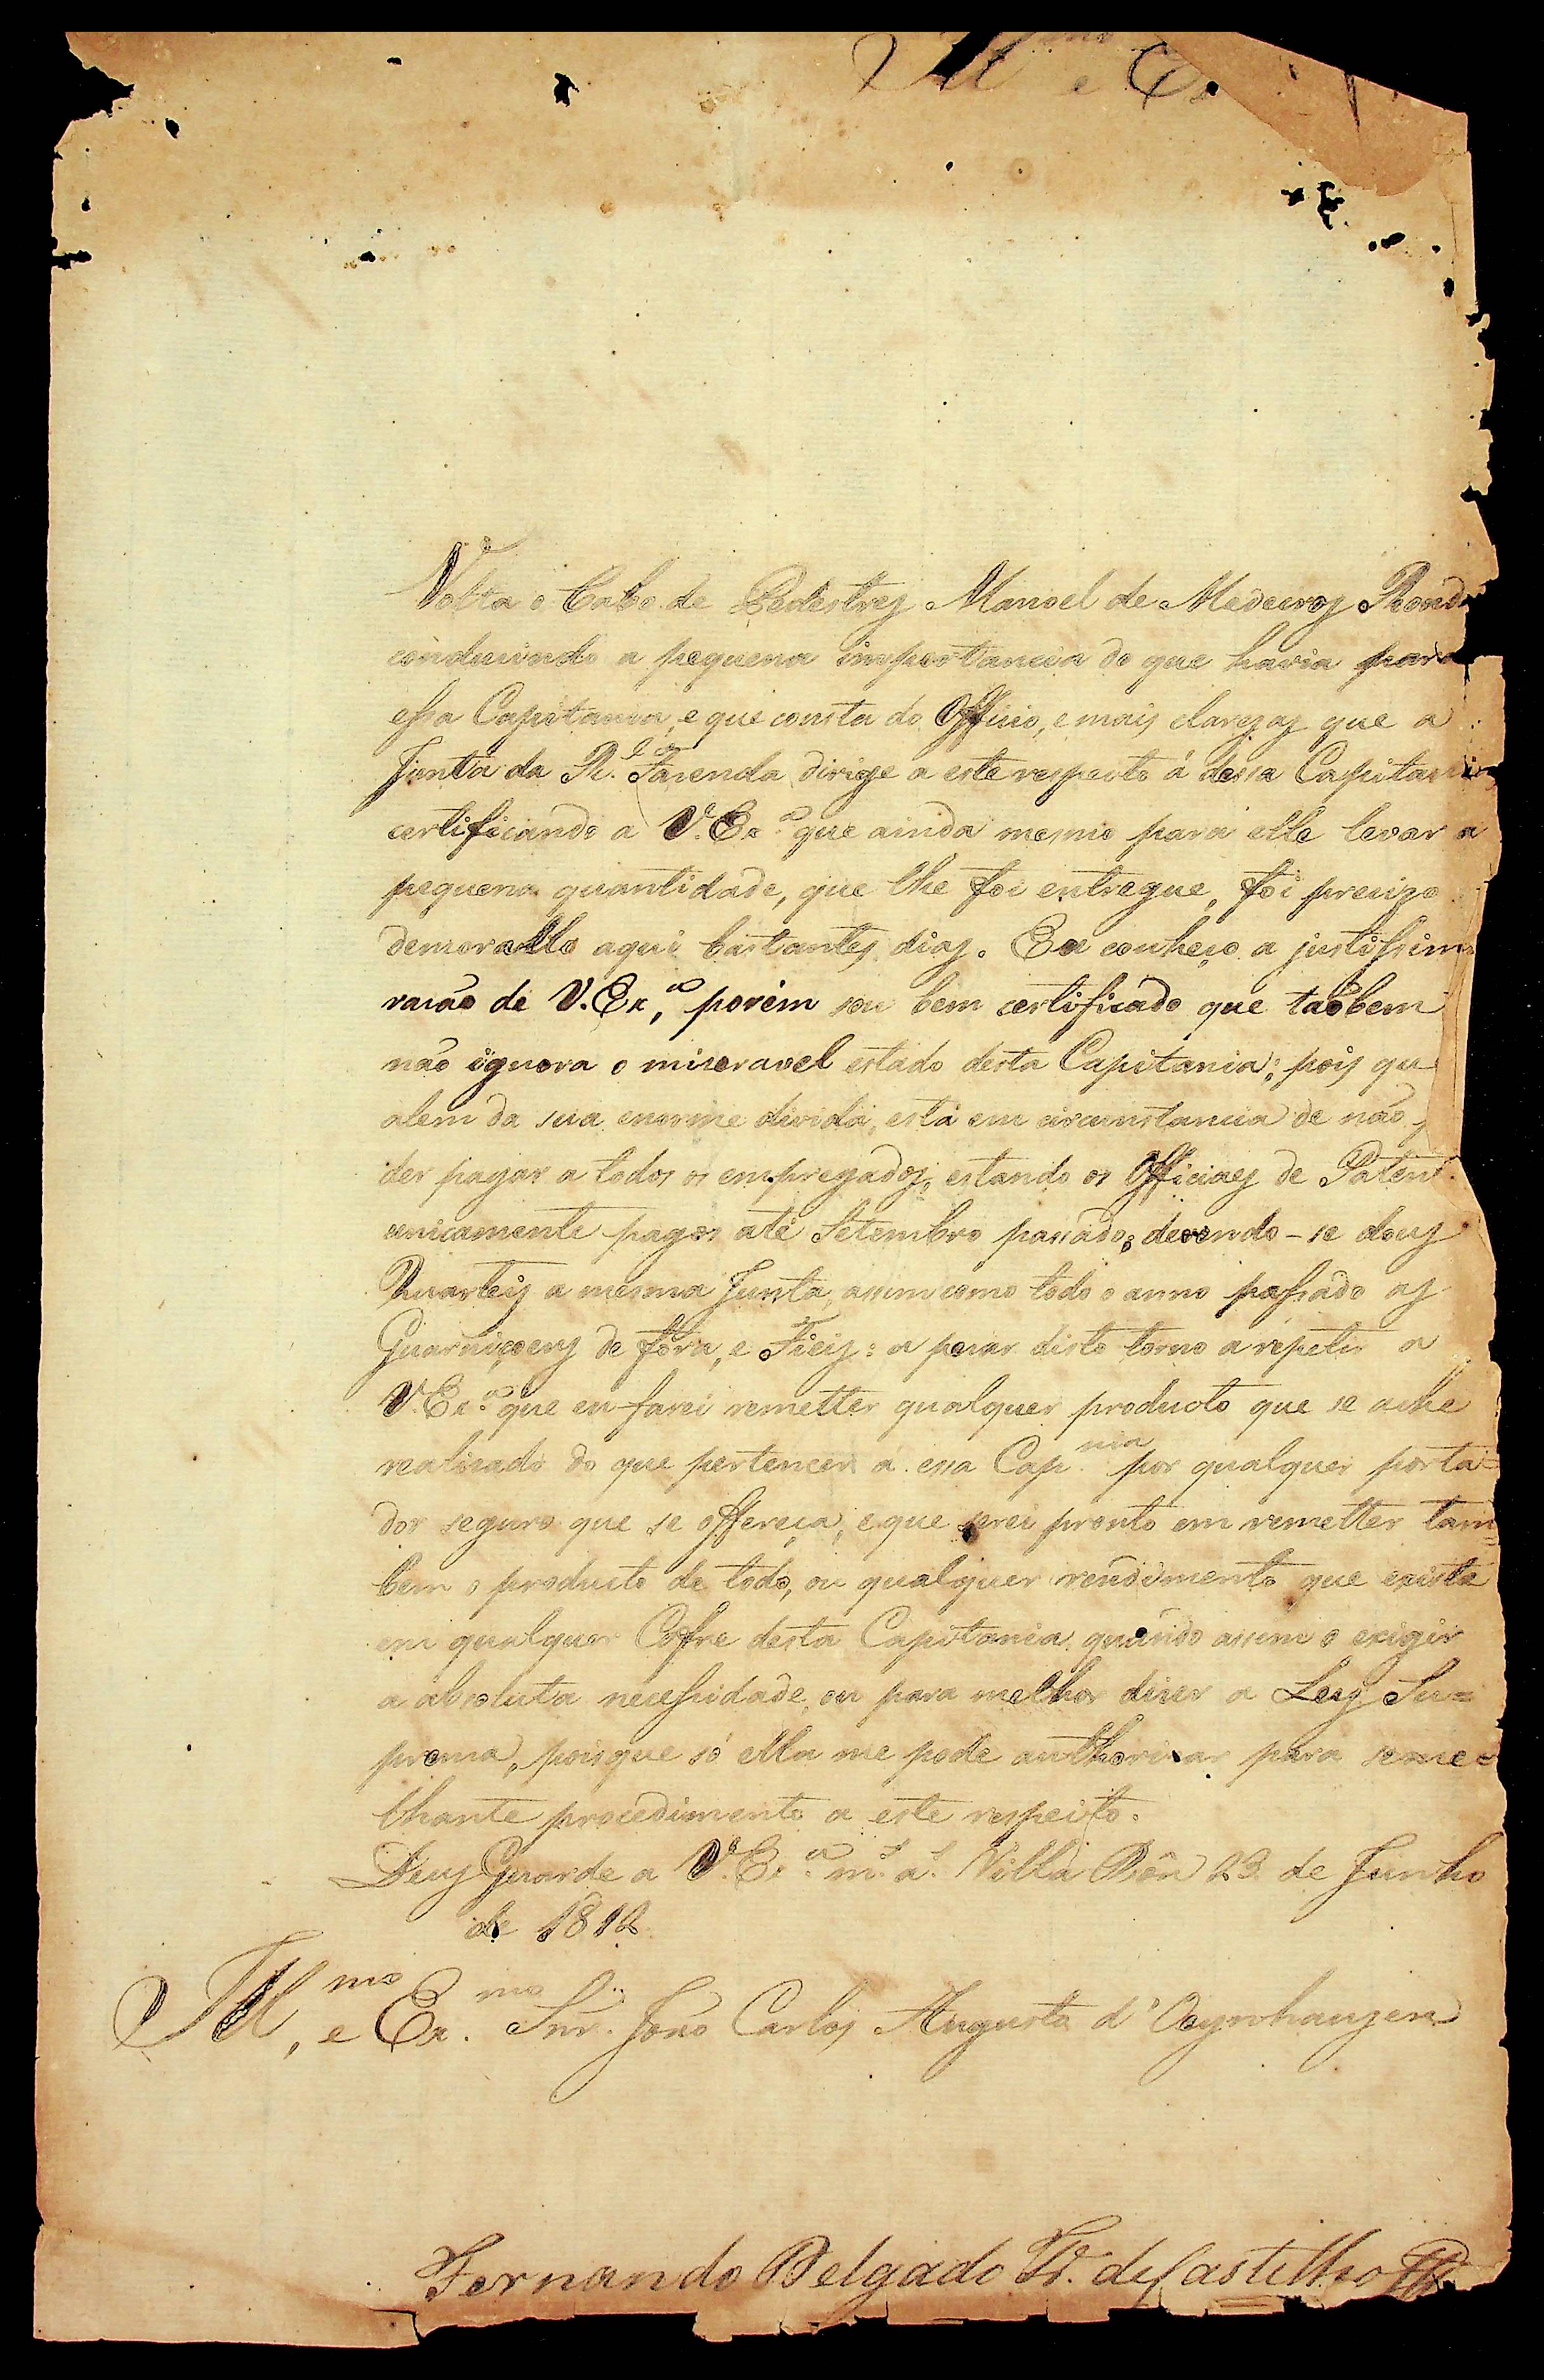 Ill e Ex
Volta o Cabo de Pedestres Manoel de Medeiros Rond
conduzindo a pequena importancia do que havia para
essa Capitania, e que consta do Officio, e mais clarezas que a
Junta da R.l Fazenda dirige a este respeito á dessa Capitani
certificando a V. Ex.a que ainda mesmo para elle levar a
pequena quantidade, que lhe foi entregue, foi precizo
demorallo aqui bastantes dias. Eu conheço a justissim
razão de V. Ex.a, porém sou bem certificado que taõbem
não ignora o miseravel estado desta Capitania; pois qu
alem da sua enorme divida, está em circunstancia de não
der pagar a todos os empregados, estando os Officiaes de Patent
unicamente pagos até Setembro passado; devendo-se dous
Quarteis a mesma Junta, assim como todo o anno passado as
Guarniçoens de fóra, e Fieis: a pezar disto torno a repetir a
V. Ex.a que eu farei remetter qualquer producto que se ache
realizado do que pertencer á essa Cap.nia por qualquer porta=
dor seguro que se offereça, e que serei pronto em remetter tam=
bem o producto de todo, ou qualquer rendimento que exista
em qualquer Cofre desta Capitania, quando assim o exigir
a absoluta necessidade, ou para melhor dizer a Ley Su=
prema, pois que só ella me pode authorizar para seme=
lhante procedimento a este respeito.
Deus Guarde a V. Ex.a m.s a.s Villa Bôa 23 de Junho
de 1812
Ill.mo, e Ex.mo Snr. João Carlos Augusto d'Oeynhauzen
Fernando Delgado Fr. de Castilho